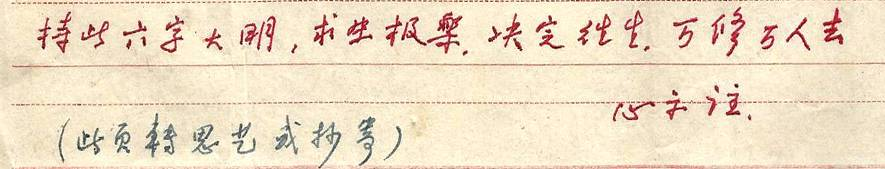 持此六字大明,求生极乐.决定往生.万修万人去
心文注.
(此页转思艺或抄寄)